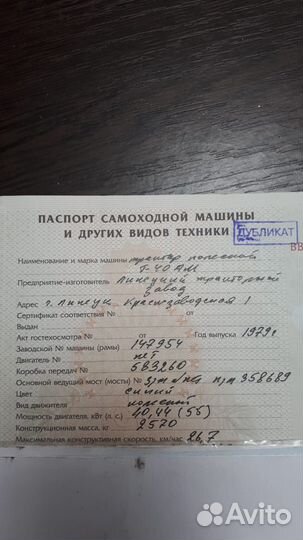 ПАСПОРТ САМОХОДНОЙ МАШИНЫ
И ДРУГИХ ВИДОВ ТЕХНИКИ
ДУБЛИКАТ
ВВ
Наименование и марка машины трактор колесный
Т-40АМ
Предприятие-изготовитель Липецкий тракторный
завод
Адрес г. Липецк Краснозаводская 1
Сертификат соответствия № от
Выдан
Акт гостехосмотра № от Год выпуска 1979г
Заводской № машины (рамы) 147954
Двигатель № нет
Коробка передач № 583260
Основной ведущий мост (мосты) № з/м б/н п/м 358689
Цвет синий
Вид движителя колесный
Мощность двигателя, кВт (л. с.) 40,44 (55)
Конструкционная масса, кг 2570
Максимальная конструктивная скорость, км/час 26,7
Avito